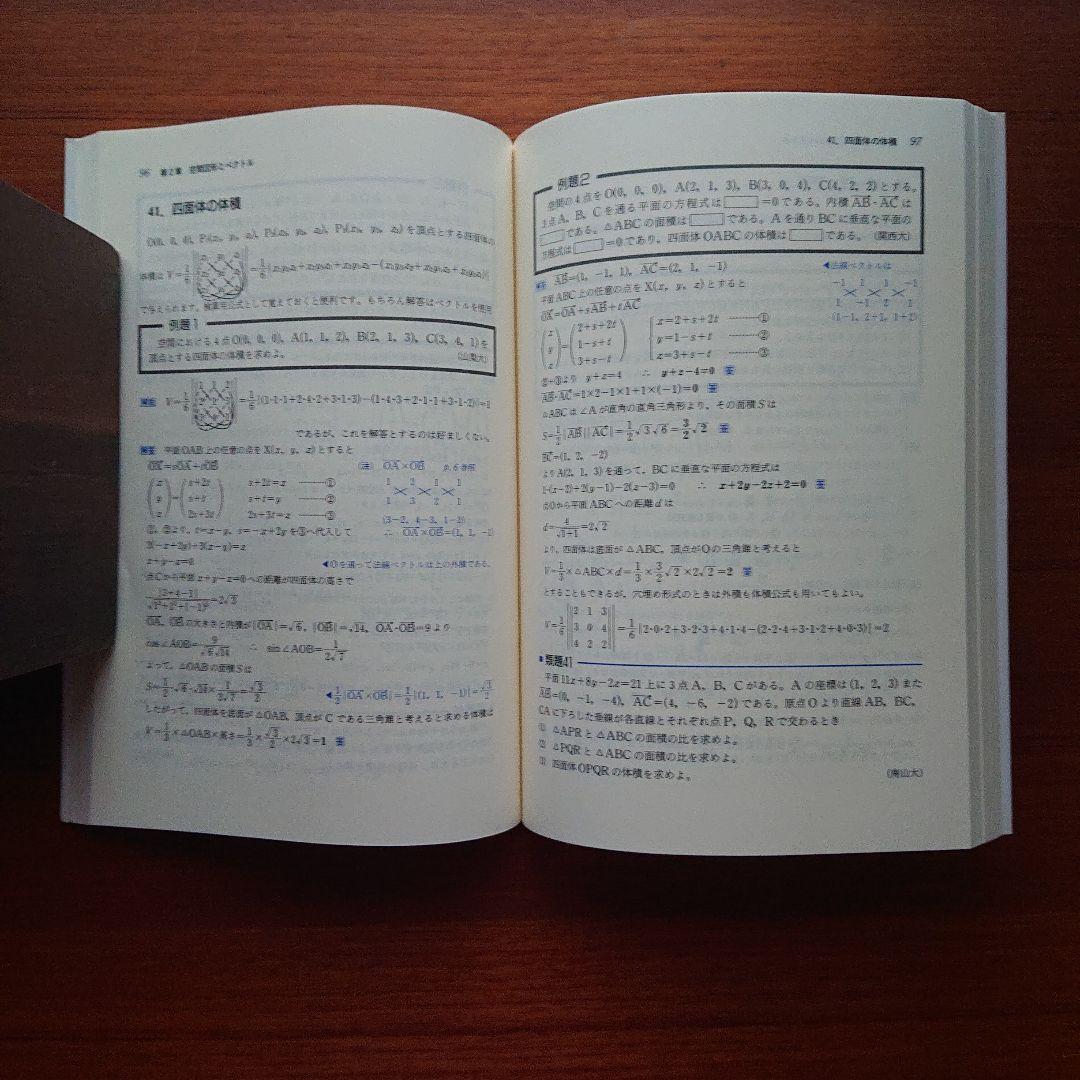 96 第2章 空間図形とベクトル
41. 四面体の体積
O(0, 0, 0), P₁(x₁, y₁, z₁), P₂(x₂, y₂, z₂), P₃(x₃, y₃, z₃) を頂点とする四面体の
体積は V=1/6
で与えられます。検算用公式として覚えておくと便利です。もちろん解答はベクトルを使用
例題1
空間における4点O(0, 0, 0), A(1, 1, 2), B(2, 1, 3), C(3, 4, 1)を
頂点とする四面体の体積を求めよ。 (山梨大)
V=1/6 =1/6|(1·1·1+2·4·2+3·1·3)−(1·4·3+2·1·1+3·1·2)|=1
であるが、これを解答とするのは好ましくない。
解答 平面OAB上の任意の点をX(x, y, z)とすると
OX=sOA+tOB (注) OA×OB p.6参照
(x y z)=(s+2t s+t 2s+3t) s+2t=x ……① s+t=y ……② 2s+3t=z ……③
1 2 1 1
1 3 2 1
(3−2, 4−3, 1−2)
∴ OA×OB=(1, 1, −1)
①, ②より, t=x−y, s=−x+2yを③へ代入して
2(−x+2y)+3(x−y)=z
x+y−z=0 ◀Oを通って法線ベクトルは上の外積である。
点Cから平面x+y−z=0への距離が四面体の高さで
|3+4−1|/√(1²+1²+(−1)²)=2√3
OA, OBの大きさと内積が|OA|=√6, |OB|=√14, OA·OB=9より
cos∠AOB=9/(√6√14) ∴ sin∠AOB=1/(2√7)
よって, △OABの面積Sは
S=1/2·√6·√14×1/(2√7)=√3/2 ◀1/2|OA×OB|=1/2|(1, 1, −1)|=√3/2
したがって, 四面体を底面が△OAB, 頂点がCである三角錐と考えると求める体積は
V=1/3×△OAB×高さ=1/3×√3/2×2√3=1 答
41. 四面体の体積 97
例題2
空間の4点をO(0, 0, 0), A(2, 1, 3), B(3, 0, 4), C(4, 2, 2)とする。
3点A, B, Cを通る平面の方程式は□=0である。内積AB·ACは
□である。△ABCの面積は□である。Aを通りBCに垂直な平面の
方程式は□=0であり, 四面体OABCの体積は□である。 (関西大)
解答 AB=(1, −1, 1), AC=(2, 1, −1) ◀法線ベクトルは
平面ABC上の任意の点をX(x, y, z)とすると
−1 1 1 −1
1 −1 2 1
(1−1, 2+1, 1+2)
OX=OA+sAB+tAC
(x y z)=(2+s+2t 1−s+t 3+s−t) x=2+s+2t ……① y=1−s+t ……② z=3+s−t ……③
②+③より y+z=4 ∴ y+z−4=0 答
AB·AC=1×2−1×1+1×(−1)=0 答
△ABCは∠Aが直角の直角三角形より, その面積Sは
S=1/2|AB||AC|=1/2√3√6=3/2√2 答
BC=(1, 2, −2)
よりA(2, 1, 3)を通って, BCに垂直な平面の方程式は
1·(x−2)+2(y−1)−2(z−3)=0 ∴ x+2y−2z+2=0 答
点Oから平面ABCへの距離dは
d=4/√(1+1)=2√2
より, 四面体は底面が△ABC, 頂点がOの三角錐と考えると
V=1/3×△ABC×d=1/3×3/2√2×2√2=2 答
とすることもできるが, 穴埋め形式のときは外積も体積公式も用いてもよい。
V=1/6||2 1 3 / 3 0 4 / 4 2 2||=1/6|2·0·2+3·2·3+4·1·4−(2·2·4+3·1·2+4·0·3)|=2
類題41
平面11x+8y−2z=21上に3点A, B, Cがある。Aの座標は(1, 2, 3)また
AB=(0, −1, −4), AC=(4, −6, −2)である。原点Oより直線AB, BC,
CAに下ろした垂線が各直線とそれぞれ点P, Q, Rで交わるとき
(1) △APRと△ABCの面積の比を求めよ。
(2) △PQRと△ABCの面積の比を求めよ。
(3) 四面体OPQRの体積を求めよ。 (南山大)